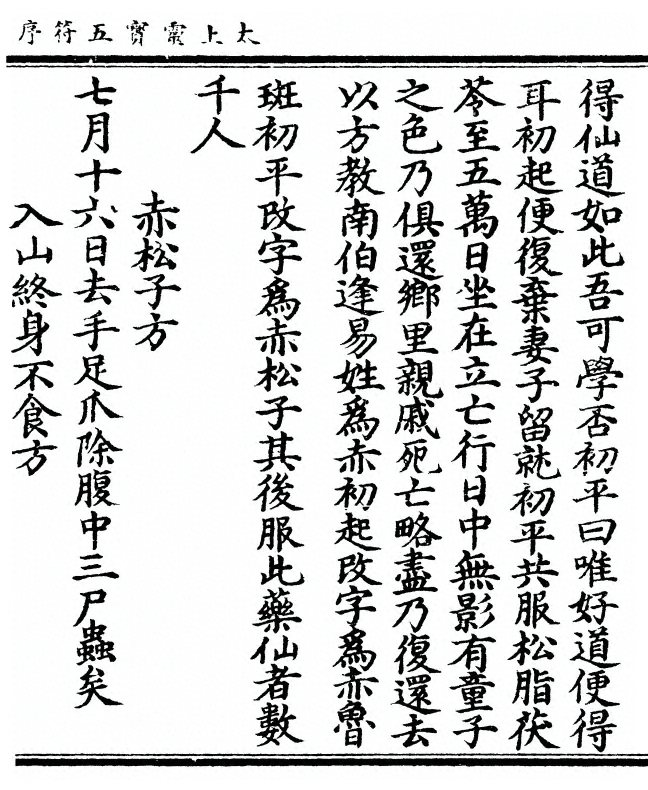 太上靈寶五符序
得仙道如此吾可學否初平曰唯好道便得
耳初起便復棄妻子留就初平共服松脂茯
苓至五萬日坐在立亡行日中無影有童子
之色乃俱還鄉里親戚死亡略盡乃復還去
以方教南伯逢易姓爲赤初起改字爲赤魯
班初平改字爲赤松子其後服此藥仙者數
千人
赤松子方
七月十六日去手足爪除腹中三尸蟲矣
入山終身不食方